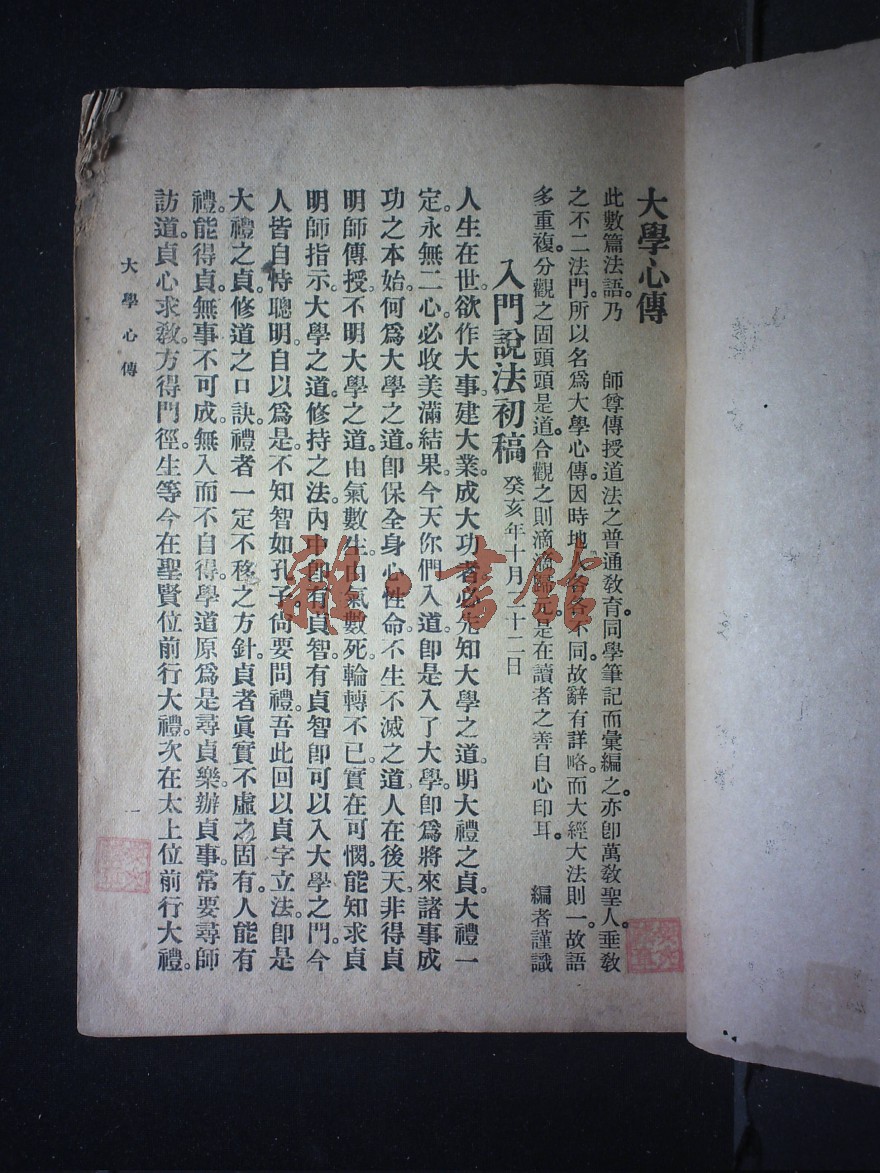 大學心傳
此數篇法語。乃　師尊傳授道法之普通教育。同學筆記而彙編之。亦卽萬敎聖人。垂敎
之不二法門。所以名爲大學心傳。因時地人各各不同。故辭有詳略。而大經大法則一。故語
多重複。分觀之固頭頭是道。合觀之則滴滴歸元。是在讀者之善自心印耳。　編者謹識
入門說法初稿　癸亥年十月二十二日
人生在世。欲作大事。建大業。成大功者。必先知大學之道。明大禮之貞。大禮一
定。永無二心。必收美滿結果。今天你們入道。卽是入了大學。卽爲將來諸事成
功之本始。何爲大學之道。卽保全身心性命。不生不滅之道。人在後天。非得貞
明師傳授。不明大學之道。由氣數生。由氣數死。輪轉不已。實在可憫。能知求貞
明師指示。大學之道。修持之法。內中卽有貞智。有貞智。卽可以入大學之門。今
人皆自恃聰明。自以爲是。不知智如孔子。尙要問禮。吾此回以貞字立法。卽是
大禮之貞。修道之口訣。禮者一定不移之方針。貞者眞實不虛之固有。人能有
禮。能得貞。無事不可成。無入而不自得。學道原爲是尋貞樂。辦貞事。常要尋師
訪道。貞心求敎。方得門徑。生等今在聖賢位前行大禮。次在太上位前行大禮。
大學心傳
一
雜·書館